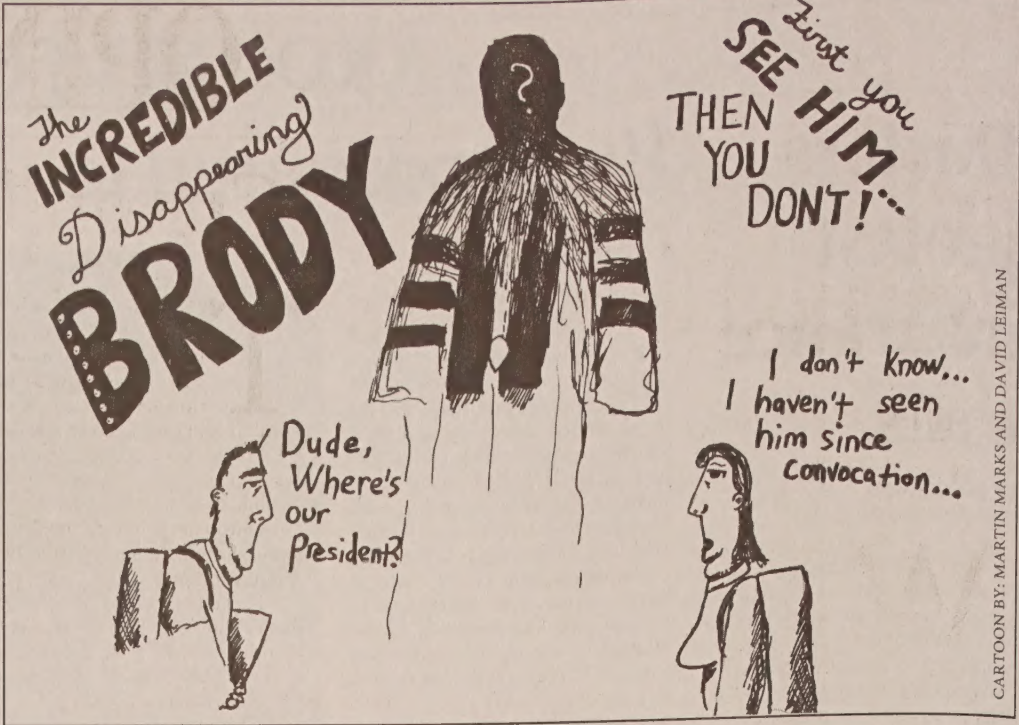 The
INCREDIBLE
Disappearing
BRODY
?
First you
SEE HIM...
THEN
YOU
DON'T!
Dude,
Where's
our
President?
I don't know...
I haven't seen
him since
convocation...
CARTOON BY: MARTIN MARKS AND DAVID LEIMAN